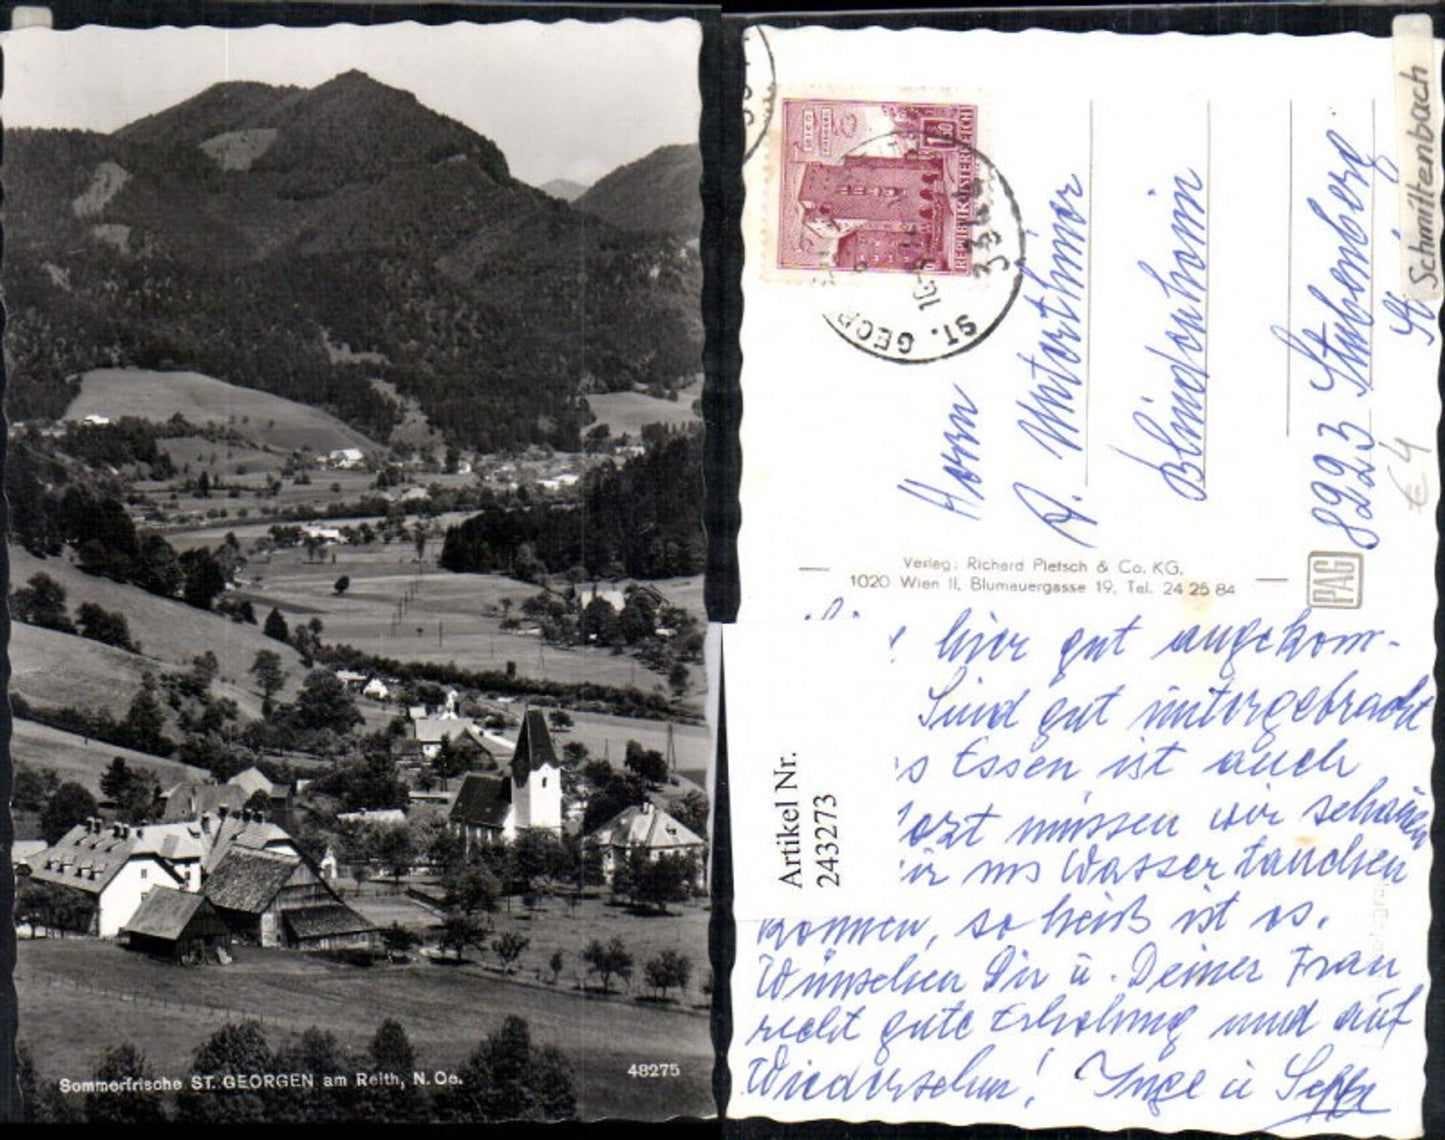 Sommerfrische ST. GEORGEN am Reith, N. Oe.
48275
Schmittenbach
€ 4
REPUBLIK ÖSTERREICH
1.50
ST. GEOR
3344
Herrn
A. Unterthiner
Blindenheim
8223 Stubenberg
St.
Verlag: Richard Pietsch & Co. KG.
1020 Wien II, Blumauergasse 19, Tel. 24 25 84
PAG
hier gut angekom-
Sind gut untergebracht
s Essen ist auch
müssen wir schauen
wir ins Wasser tauchen
können, so heiß ist es.
Wünschen Dir u. Deiner Frau
recht gute Erholung und auf
Wiedersehn! Inge u Sepp
Artikel Nr.
243273